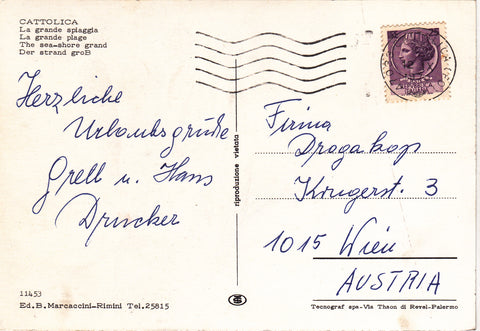 CATTOLICA
La grande spiaggia
La grande plage
The sea-shore grand
Der strand groB
Herzliche
Urlaubsgrüße
Grell u. Hans
Drucker
riproduzione vietata
Firma
Dragakop
Krugerst. 3
1015 Wien
AUSTRIA
11453
Ed.B.Marcaccini-Rimini Tel.25815
Tecnograf spa-Via Thaon di Revel-Palermo